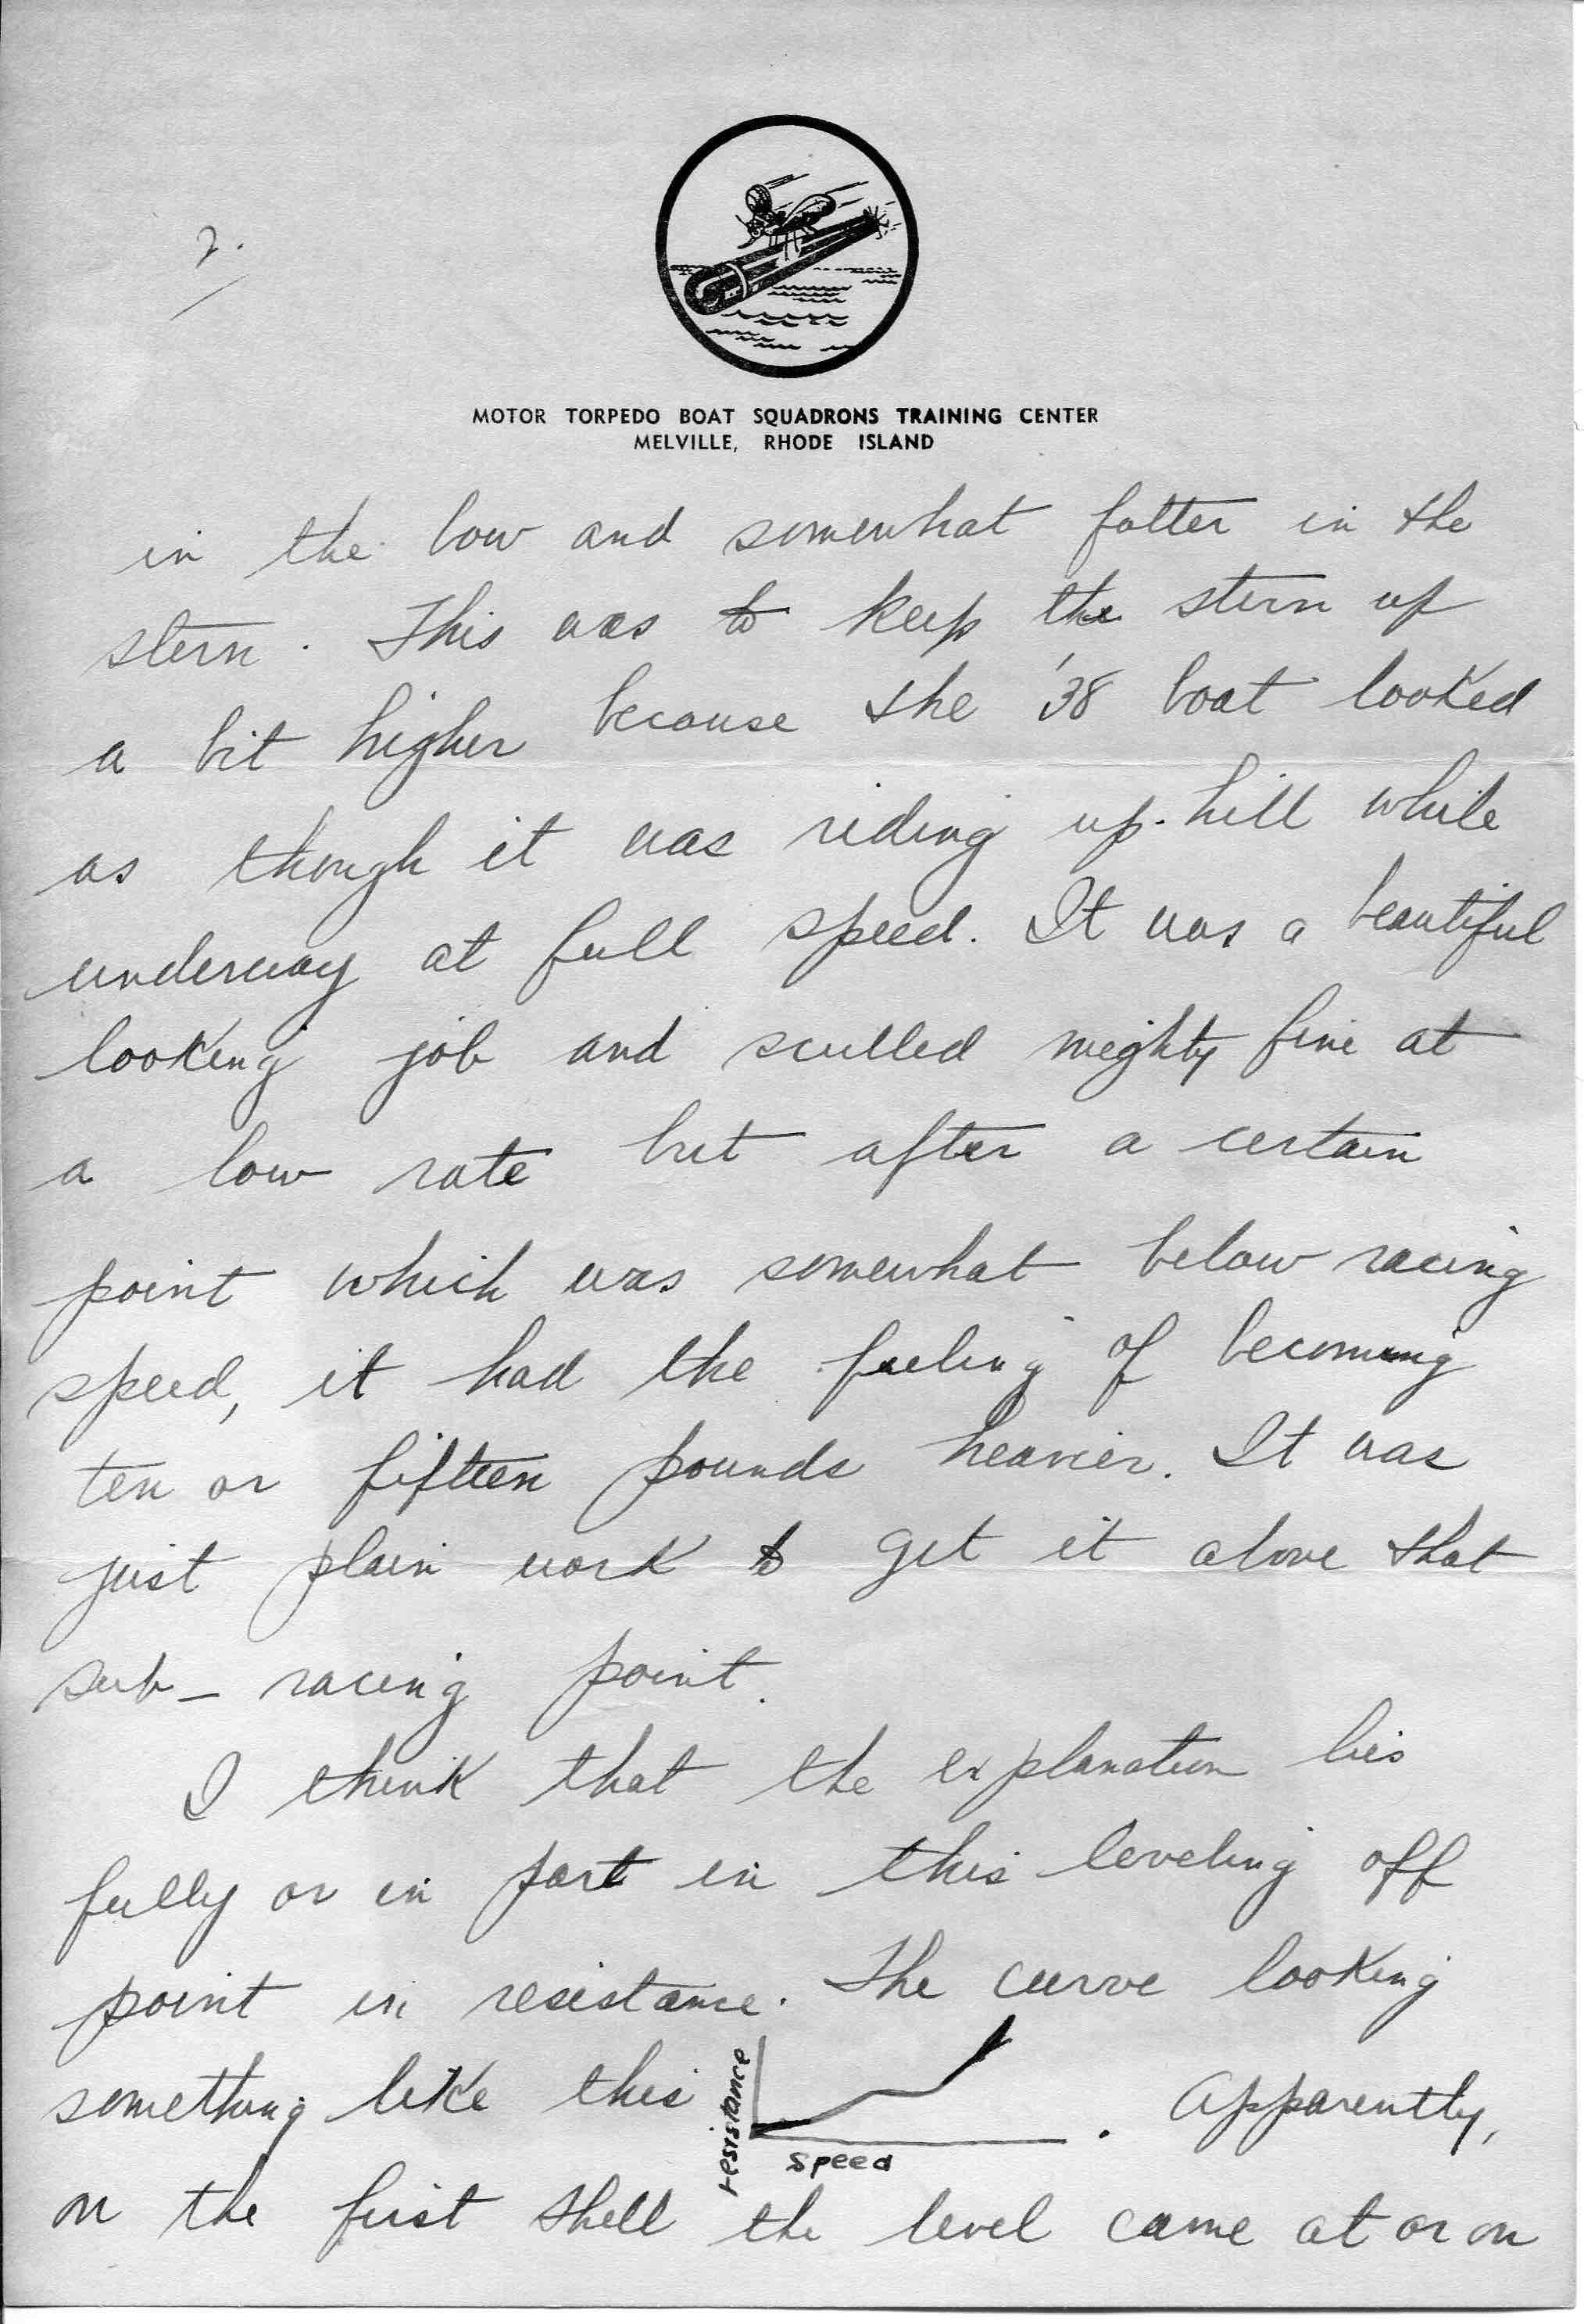 2.
MOTOR TORPEDO BOAT SQUADRONS TRAINING CENTER
MELVILLE, RHODE ISLAND
in the bow and somewhat fatter in the
stern. This was to keep the stern up
a bit higher because the '38 boat looked
as though it was riding up-hill while
underway at full speed. It was a beautiful
looking job and sculled mighty fine at
a low rate but after a certain
point which was somewhat below racing
speed, it had the feeling of becoming
ten or fifteen pounds heavier. It was
just plain work to get it above that
sub-racing point.
I think that the explanation lies
fully or in part in this leveling off
point in resistance. The curve looking
something like this
resistance
speed
. Apparently,
on the first shell the level came at or on